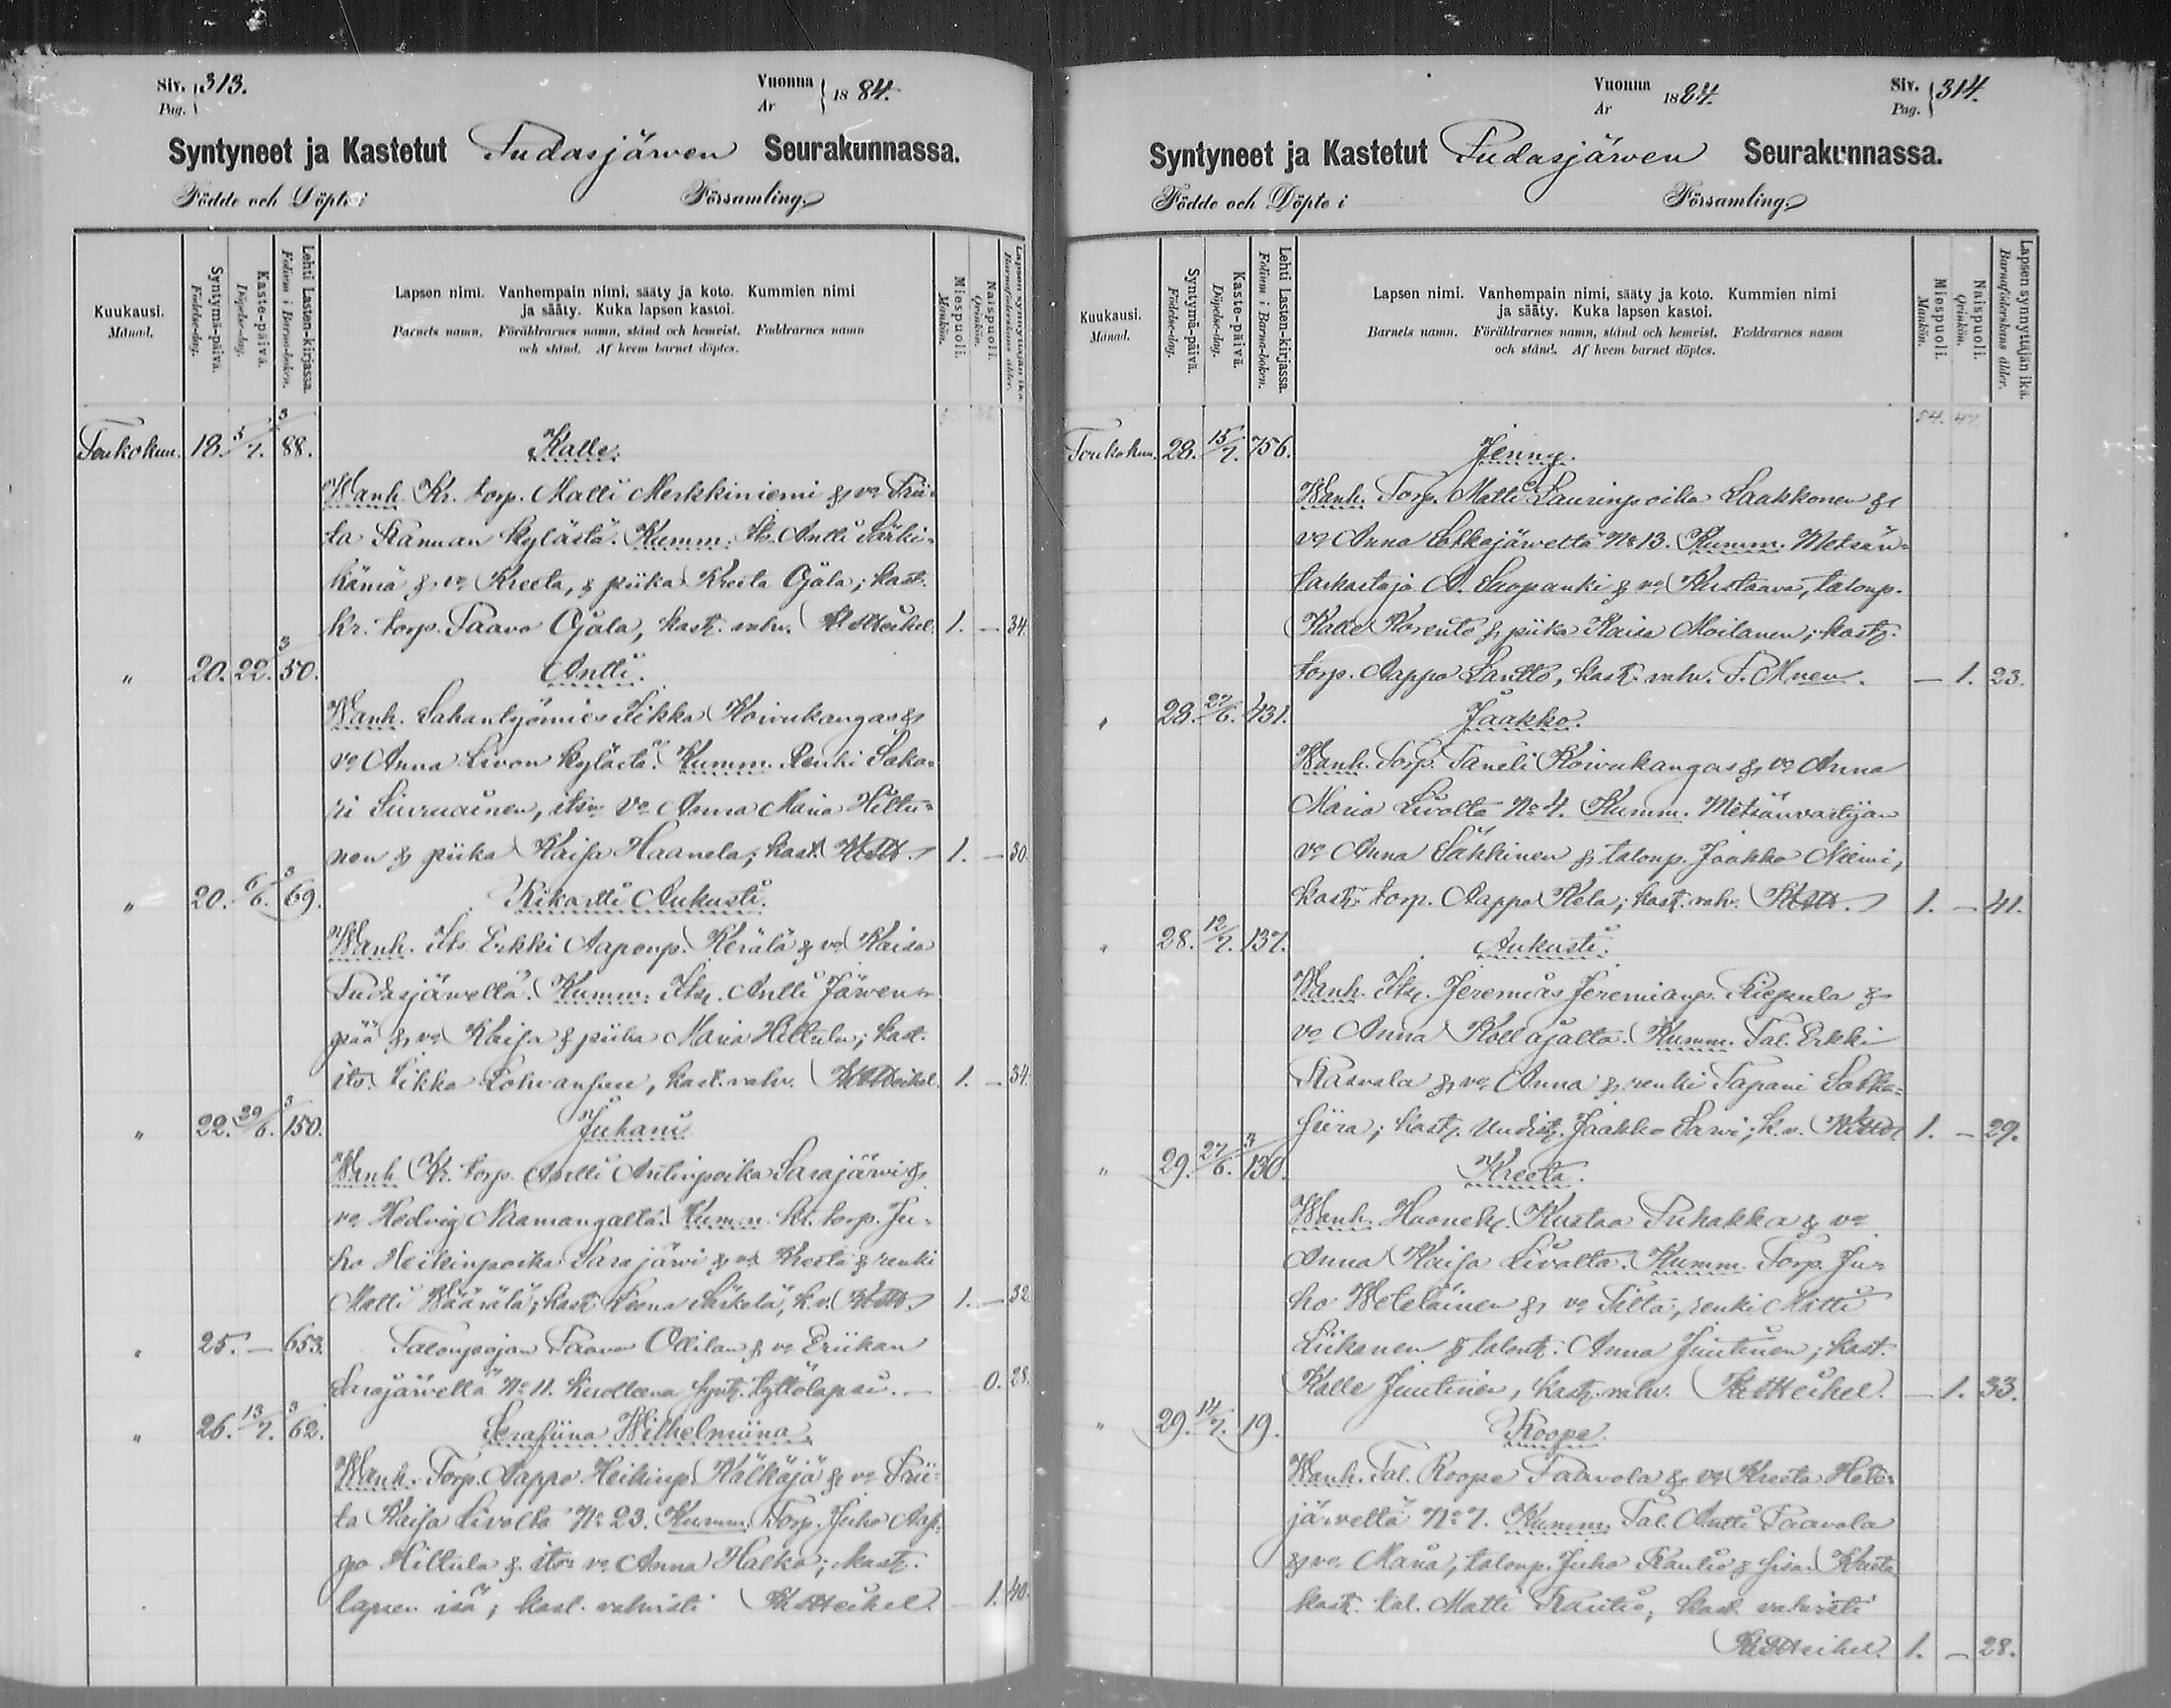 Siv. 313.
Pag.
Vuonna
År 1884.
Syntyneet ja Kastetut Pudasjärwen Seurakunnassa.
Födde och Döpte i Församling.
Kuukausi.
Månad.
Syntymä-päivä.
Födelse-dag.
Kaste-päivä.
Döpelse-dag.
Lehti Lasten-kirjassa.
Folium i Barna-boken.
Lapsen nimi. Vanhempain nimi, sääty ja koto. Kummien nimi
ja sääty. Kuka lapsen kastoi.
Barnets namn. Föräldrarnes namn, stånd och hemvist. Faddrarnes namn
och stånd. Af hvem barnet döptes.
Miespuoli.
Mankön.
Naispuoli.
Qvinkön.
Lapsen synnyttäjän ikä.
Barnaföderskans ålder.
Toukokuu. 18. 5/7. 3/88. Kalle.
Wanh. Kr. torp. Matti Merkkiniemi & vo Prii-
ta Rannan kylästä. Kumm. Its. Antti Särki-
kämä & vo Kreeta, & piika Kreeta Ojala; kast.
kr. torp. Paavo Ojala, kast. vahv. 1. — 34.
" 20. 22. 3/50. Antti.
Wanh. Sahantyömies Pekka Koivukangas &
vo Anna Livon kylästä. Kumm. Renki Saka-
ri Siuruainen, itsn vo Anna Maria Hiltu-
nen & piika Kaisa Haanela; kast. 1. — 30.
" 20. 6/6. 3/69. Rikartti Aukusti.
Wanh. Its Erkki Aaponp. Kerälä & vo Kaisa
Pudasjärveltä. Kumm. Its. Antti Järven-
pää & vo Kaisa & piika Maria Hiltula; kast.
its. Pekka Lohvansuu, kast. vahv. 1. — 34.
" 22. 29/6. 3/150. Juhani
Wanh. Kr. torp. Antti Antinpoika Sarajärvi &
vo Hedvig Naamangalta. Kumm. kr. torp. Ju-
ho Heikinpoika Sarajärvi & vo Kreeta & renki
Matti Määrälä; kast. Leena Särkelä, k.v. 1. — 32
" 25. — 653. Talonpojan Paavo Ollilan & vo Eriikan
Sarajärveltä No 11. kuolleena synt. tyttölapsi. — 0. 28.
" 26. 13/7. 3/62. Serafiina Wilhelmiina.
Wanh. Torp. Aappo Heikinp. Kälkäjä & vo Prii-
ta Kaisa Livolta No 23. Kumm. Torp. Juho Aap-
po Hiltula & itsn vo Anna Halko; kast.
lapsen isä; kast. vahvisti 1. 40.
Vuonna
År 1884.
Siv. 314.
Pag.
Syntyneet ja Kastetut Pudasjärwen Seurakunnassa.
Födde och Döpte i Församling.
Kuukausi.
Månad.
Syntymä-päivä.
Födelse-dag.
Kaste-päivä.
Döpelse-dag.
Lehti Lasten-kirjassa.
Folium i Barna-boken.
Lapsen nimi. Vanhempain nimi, sääty ja koto. Kummien nimi
ja sääty. Kuka lapsen kastoi.
Barnets namn. Föräldrarnes namn, stånd och hemvist. Faddrarnes namn
och stånd. Af hvem barnet döptes.
Miespuoli.
Mankön.
Naispuoli.
Qvinkön.
Lapsen synnyttäjän ikä.
Barnaföderskans ålder.
54. 47.
Toukokuu. 28. 15/7. 756. Jenny.
Wanh. Torp. Matti Laurinpoika Laakkonen &
vo Anna No 13. Kumm. Metsän-
tarkastaja A. & vo Kustaava, talonp.
Kalle Korento & piika Kaisa Moilanen; kast.
torp. Aappo Lantto, kast. vahv. — 1. 23.
" 28. 27/6. 431. Jaakko.
Wanh. Torp. Taneli Koivukangas & vo Anna
Maria Livolta No 4. Kumm. Metsänvartijan
vo Anna Säkkinen & talonp. Jaakko Niemi,
kast. torp. Aappo Kela; kast. vahv. 1. — 41.
" 28. 12/7. 137. Aukusti.
Wanh. Its. Jeremias Jeremianp. Riepula &
vo Anna Kollajalta. Kumm. Tal. Erkki
Rasvala & vo Anna & renki Tapani Sotka-
siira; kast. Uudist. Jaakko Sarvi; k.v. 1. — 29.
" 29. 27/6. 3/130. Kreeta.
Wanh. Huoneh. Kustaa Puhakka & vo
Anna Kaisa Livolta. Kumm. Torp. Ju-
ho Weteläinen & vo Tilta, renki Matti
Liikanen & talont. Anna Juutinen; kast.
Kalle Juutinen, kast. vahv. — 1. 33.
" 29. 14/7. 19. Roope.
Wanh. Tal. Roope Paavola & vo Kreeta Hete-
järveltä No 7. Kumm. Tal. Antti Paavola
& vo Maria, talonp. Juho Rautio & sisar Kreeta
kast. tal. Matti Rautio; kast. vahvisti
1. — 28.